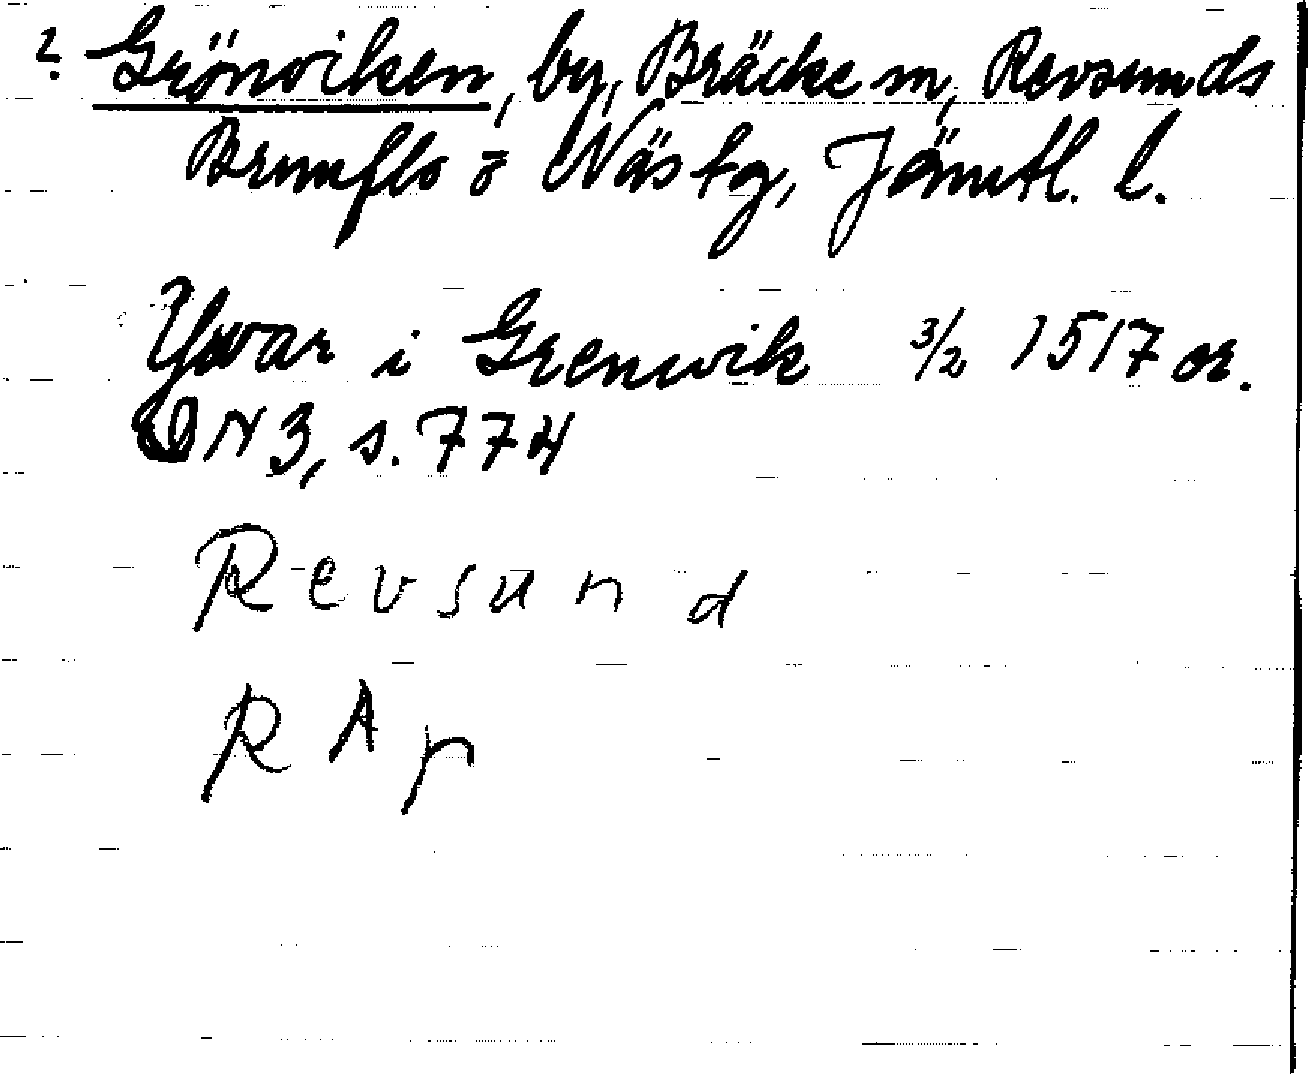 2. Grönviken, by, Bräcke m, Revsunds
Brunflo o Näs tg, Jämtl. l.
Ywar i Grenwik 3/2 1517 or.
DN 3, s. 774
Revsund
RAp